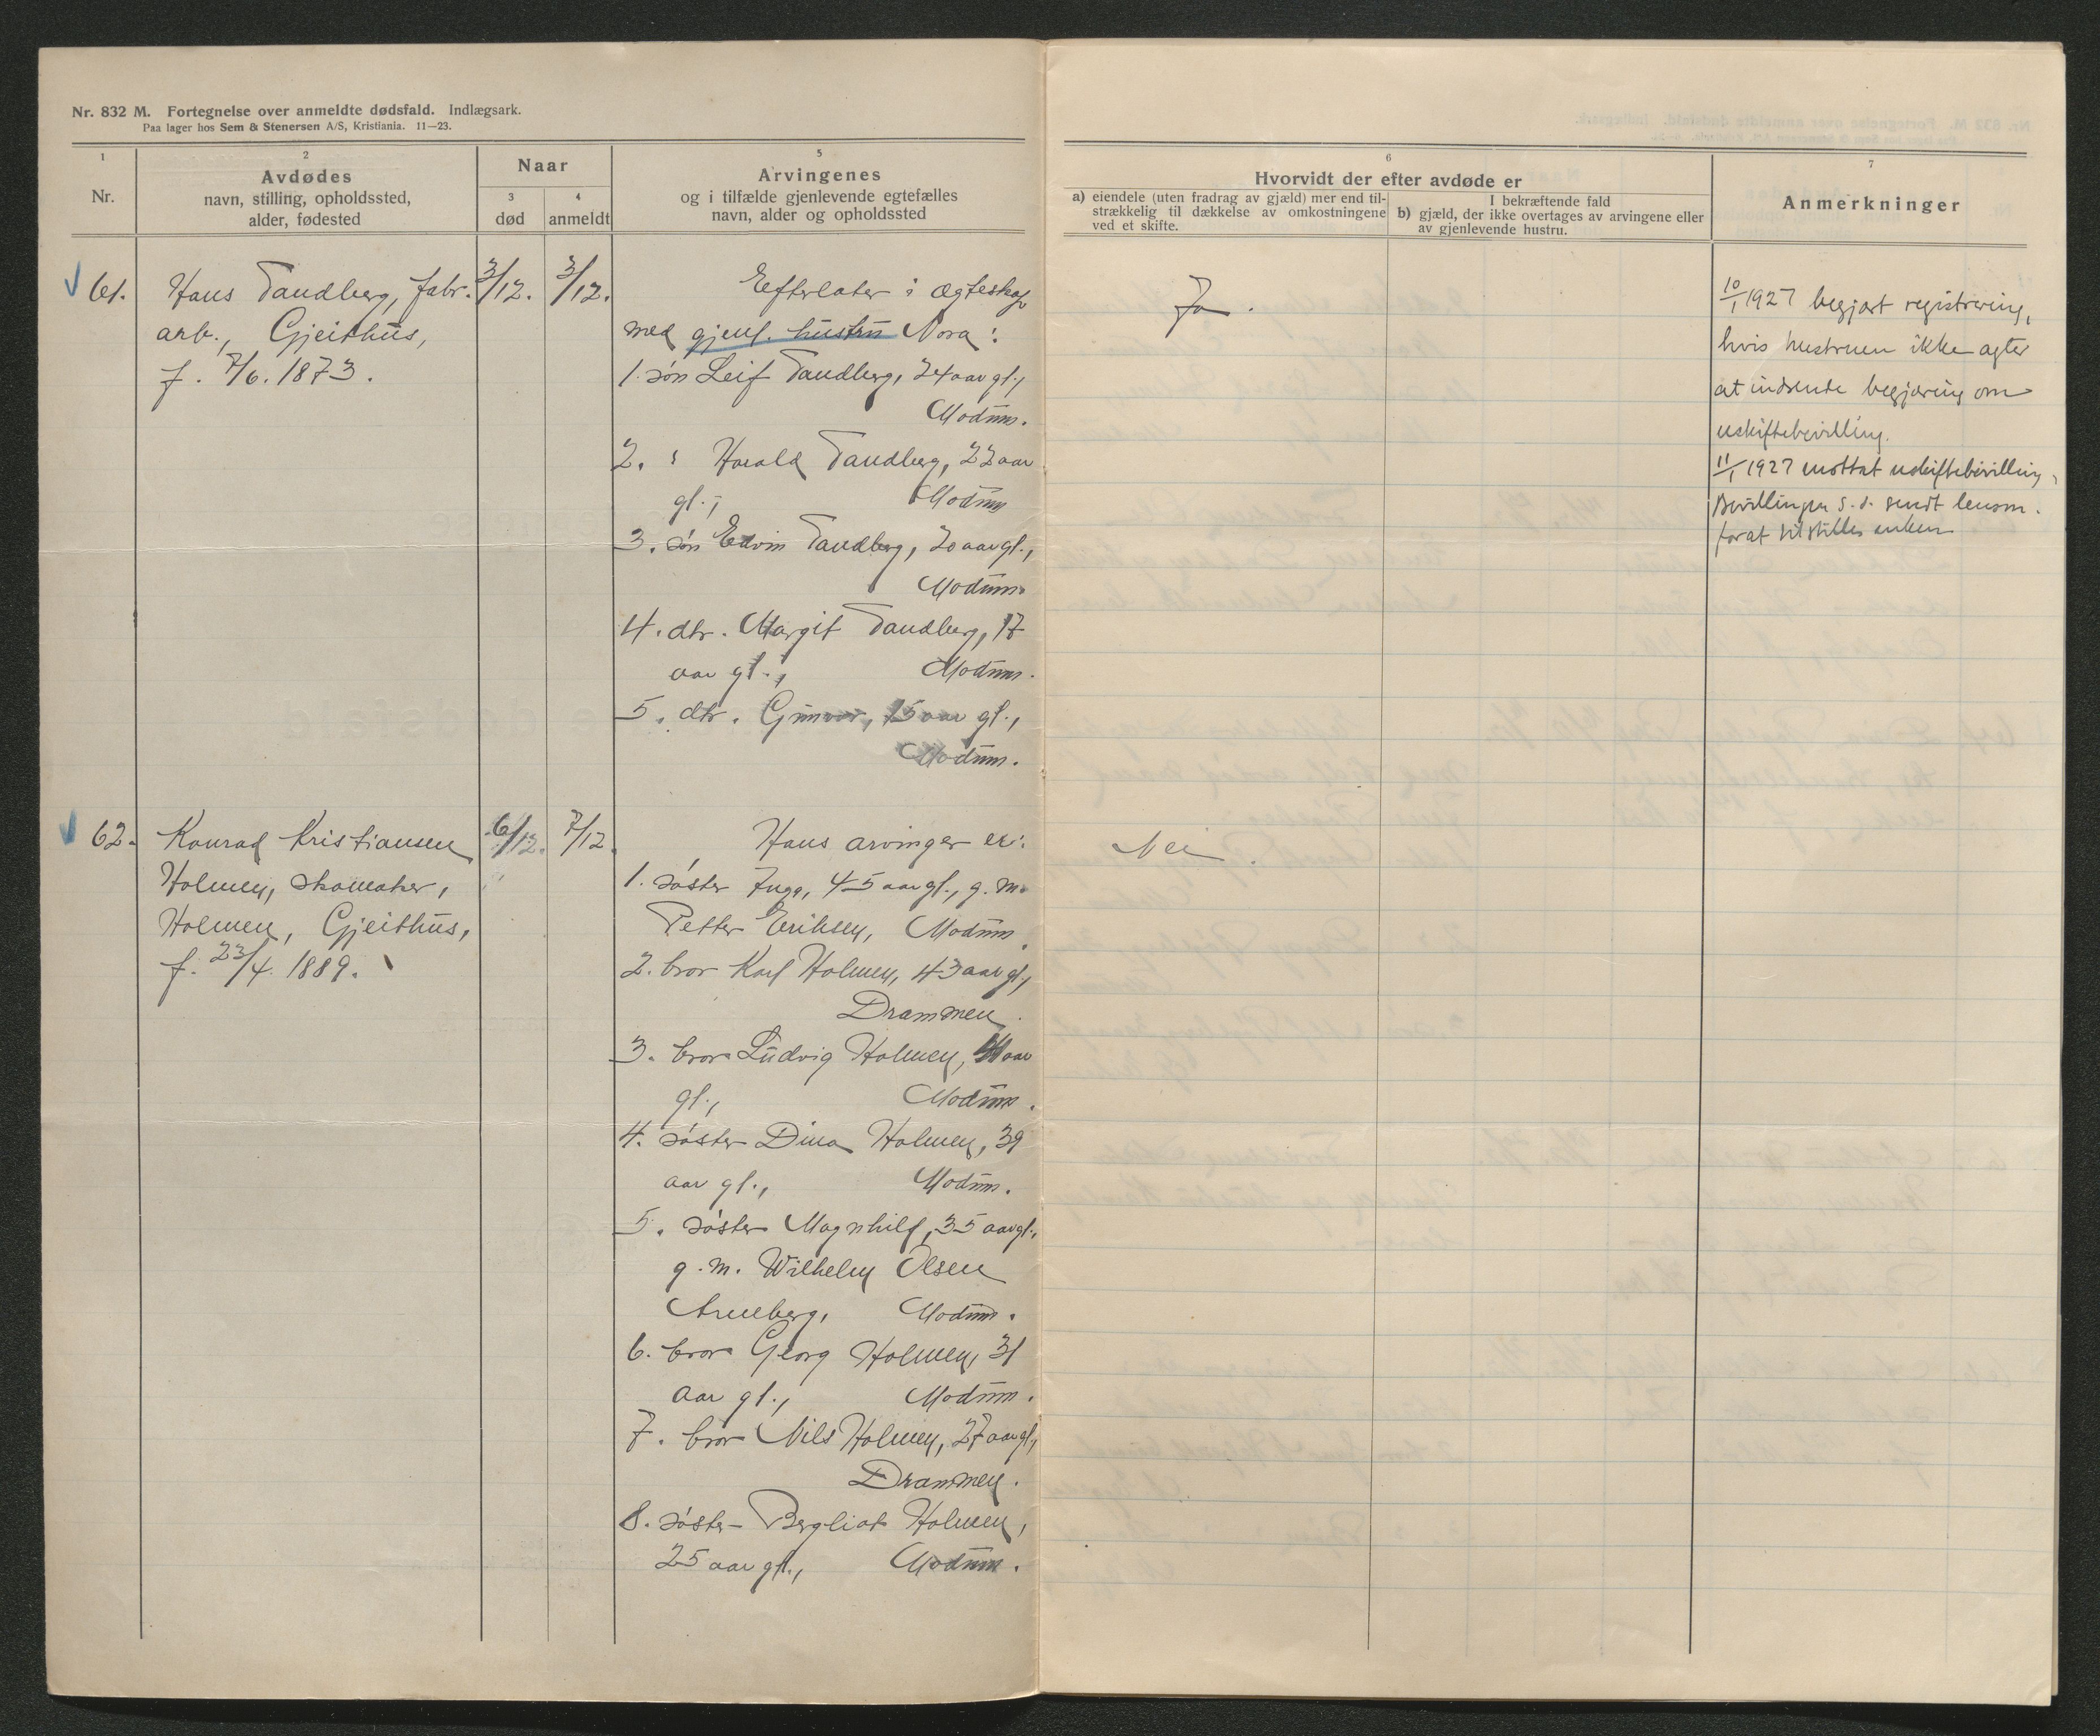 Nr. 832 M. Fortegnelse over anmeldte dødsfald. Indlægsark.
Paa lager hos Sem & Stenersen A/S, Kristiania. 11—23.
1
Nr.
2
Avdødes
navn, stilling, opholdssted,
alder, fødested
Naar
3
død
4
anmeldt
5
Arvingenes
og i tilfælde gjenlevende egtefælles
navn, alder og opholdssted
61.
Hans Tandberg, fabr.
arb., Gjeithus,
f. 7/6. 1873.
3/12.
3/12.
Efterlater i ægteskap
med gjenl. hustru Nora:
1. søn Leif Tandberg, 24 aar gl.,
Modum.
2. " Harald Tandberg, 22 aar
gl., Modum
3. søn Edvin Tandberg, 20 aar gl.,
Modum.
4. dtr. Margit Tandberg, 17
aar gl., Modum.
5. dtr. Gunvor, 15 aar gl.,
Modum.
62.
Konrad Kristiansen
Holmen, skomaker,
Holmen, Gjeithus,
f. 23/4. 1889.
6/12.
7/12.
Hans arvinger er:
1. søster Inga, 45 aar gl., g. m.
Petter Eriksen, Modum.
2. bror Karl Holmen, 43 aar gl.,
Drammen.
3. bror Ludvig Holmen, 41 aar
gl., Modum.
4. søster Dina Holmen, 39
aar gl., Modum.
5. søster Magnhild, 35 aar gl.,
g. m. Wilhelm Olsen
Arneberg, Modum.
6. bror Georg Holmen, 31
aar gl., Modum.
7. bror Nils Holmen, 27 aar gl.,
Drammen.
8. søster Bergliot Holmen,
25 aar gl., Modum.
6
Hvorvidt der efter avdøde er
a) eiendele (uten fradrag av gjæld) mer end til-
strækkelig til dækkelse av omkostningene
ved et skifte.
I bekræftende fald
b) gjæld, der ikke overtages av arvingene eller
av gjenlevende hustru.
7
Anmerkninger
Ja.
10/1 1927 begjært registrering,
hvis hustruen ikke agter
at indsende begjæring om
uskiftebevilling.
11/1 1927 mottat uskiftebevilling,
Bevillingen s. d. sendt lensm.
forat tilstilles enken
Nei.